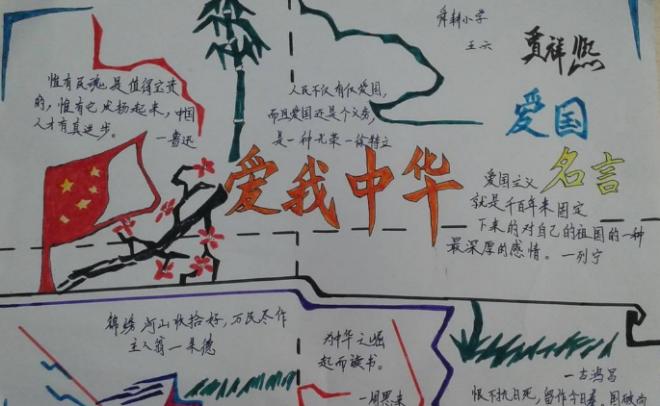 舜耕小学
王六
贾祥熙
惟有民魂是值得宝贵
的,惟有它发扬起来,中国
人才有真进步。
—鲁迅
人民不仅有权爱国,
而且爱国还是个义务,
是一种光荣—徐特立
爱国
名言
爱我中华
爱国主义
就是千百年来固定
下来的对自己的祖国的一种
最深厚的感情。—列宁
锦绣河山收拾好,万民尽作
主人翁—朱德
为中华之崛
起而读书。
—周恩来
—吉鸿昌
恨不抗日死,留作今日羞。国破尚